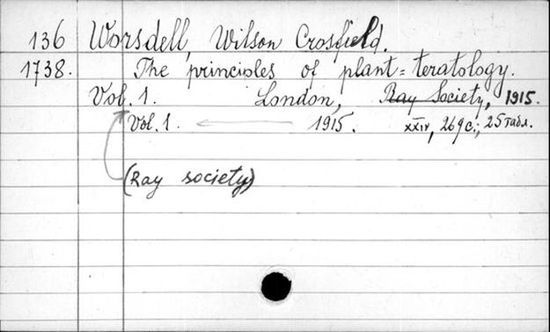 136 Worsdell, Wilson Crosfield.
1738. The principles of plant=teratology.
Vol. 1. London, Ray Society, 1915.
Vol. 1. 1915. XXIV, 269 с.; 25 табл.
(Ray society)